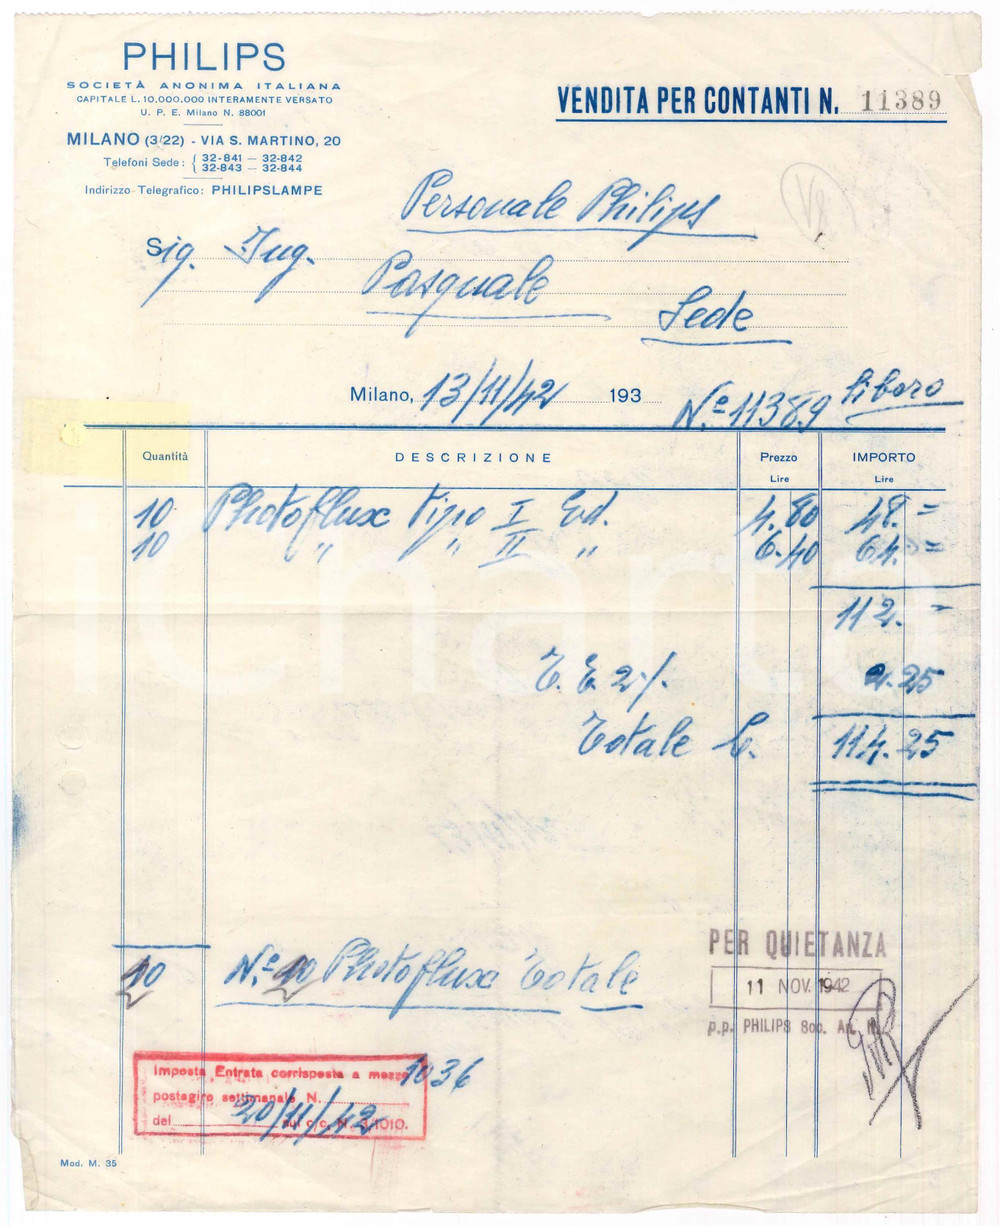 PHILIPS
SOCIETÀ ANONIMA ITALIANA
CAPITALE L. 10.000.000 INTERAMENTE VERSATO
U. P. E. Milano N. 88001
MILANO (3/22) - VIA S. MARTINO, 20
Telefoni Sede: { 32-841 — 32-842
32-843 — 32-844
Indirizzo Telegrafico: PHILIPSLAMPE
VENDITA PER CONTANTI N. 11389
Personale Philips
Sig. Ing.
Pasquale
Sede
Milano, 13/11/42 193
N.º 11389 libero
Quantità DESCRIZIONE Prezzo Lire IMPORTO Lire
10 Photoflux tipo I Ed. 4.80 48.=
10 " " II " 6.40 64.=
112.=
T. E. 2% 2.25
Totale L. 114.25
20 N.º 20 Photoflux Totale
PER QUIETANZA
11 NOV. 1942
p.p. PHILIPS Soc. An. It.
Imposta Entrata corrisposta a mezzo 1036
postagiro settimanale N.
del 20/11/42 sul c/c N. 3/1010.
Mod. M. 35
icharta